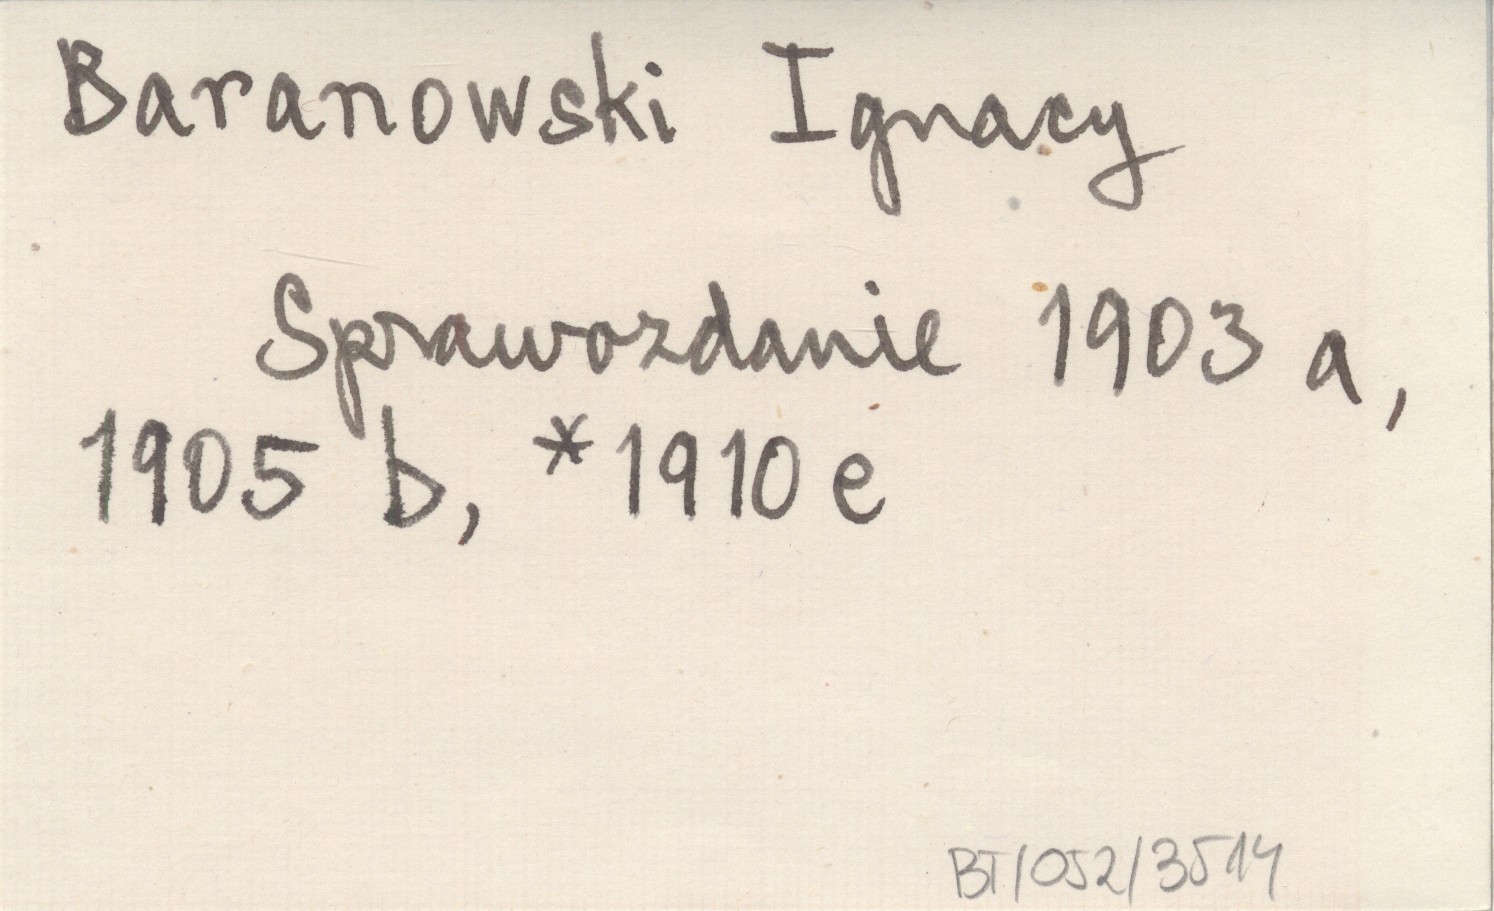 Baranowski Ignacy
Sprawozdanie 1903 a,
1905 b, *1910 e
BT/052/3514